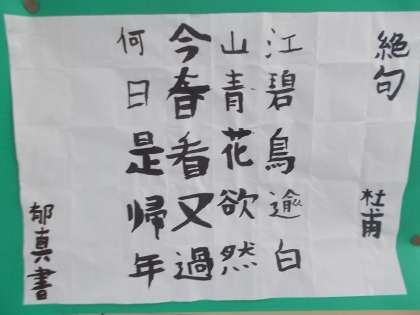 絕句
杜甫
江碧鳥逾白
山青花欲然
今春看又過
何日是歸年
郁真書